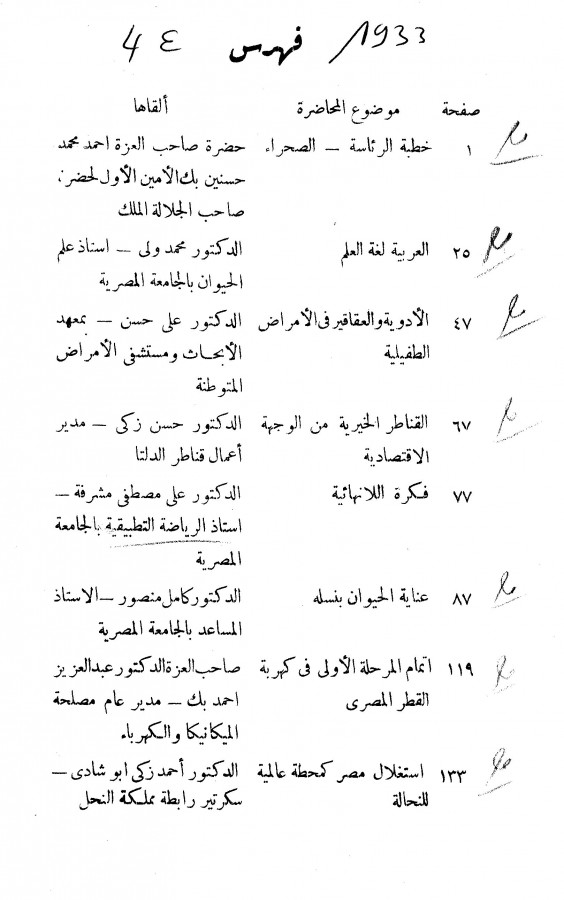 1933 / فهرس ٤ع
صفحة موضوع المحاضرة ألقاها
١ خطبة الرئاسة – الصحراء حضرة صاحب العزة احمد محمد
حسنين بك الأمين الأول لحضرة
صاحب الجلالة الملك
٢٥ العربية لغة العلم الدكتور محمد ولى – استاذ علم
الحيوان بالجامعة المصرية
٤٧ الأدوية والعقاقير فى الأمراض الدكتور على حسن – بمعهد
الطفيلية الأبحاث ومستشفى الأمراض
المتوطنة
٦٧ القناطر الخيرية من الوجهة الدكتور حسن زكى – مدير
الاقتصادية أعمال قناطر الدلتا
٧٧ فكرة اللانهائية الدكتور على مصطفى مشرفة –
استاذ الرياضة التطبيقية بالجامعة
المصرية
٨٧ عناية الحيوان بنسله الدكتور كامل منصور – الاستاذ
المساعد بالجامعة المصرية
١١٩ اتمام المرحلة الأولى فى كهربة صاحب العزة الدكتور عبد العزيز
القطر المصرى احمد بك – مدير عام مصلحة
الميكانيكا والكهرباء
١٣٣ استغلال مصر كمحطة عالمية الدكتور أحمد زكى ابو شادى –
للنحالة سكرتير رابطة مملكة النحل